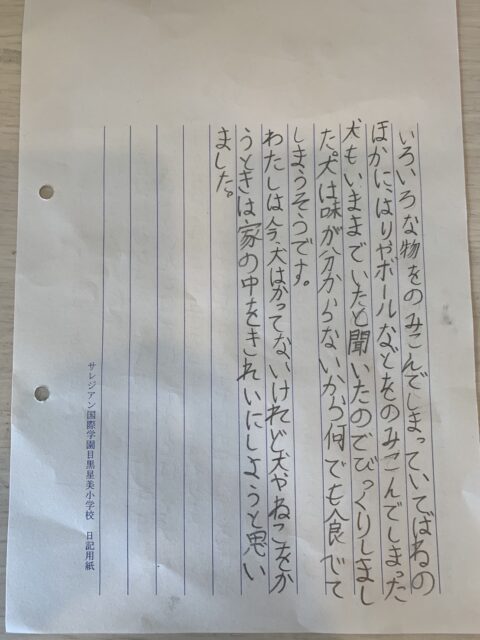 いろいろな物をのみこんでしまっていてばねの
ほかに、はりやボールなどをのみこんでしまった
犬もいままでいたと聞いたのでびっくりしまし
た。犬は味が分からないから何でも食べて
しまうそうです。
わたしは今、犬はかってないけれど犬やねこをか
うときは家の中をきれいにしようと思い
ました。
サレジアン国際学園目黒星美小学校 日記用紙